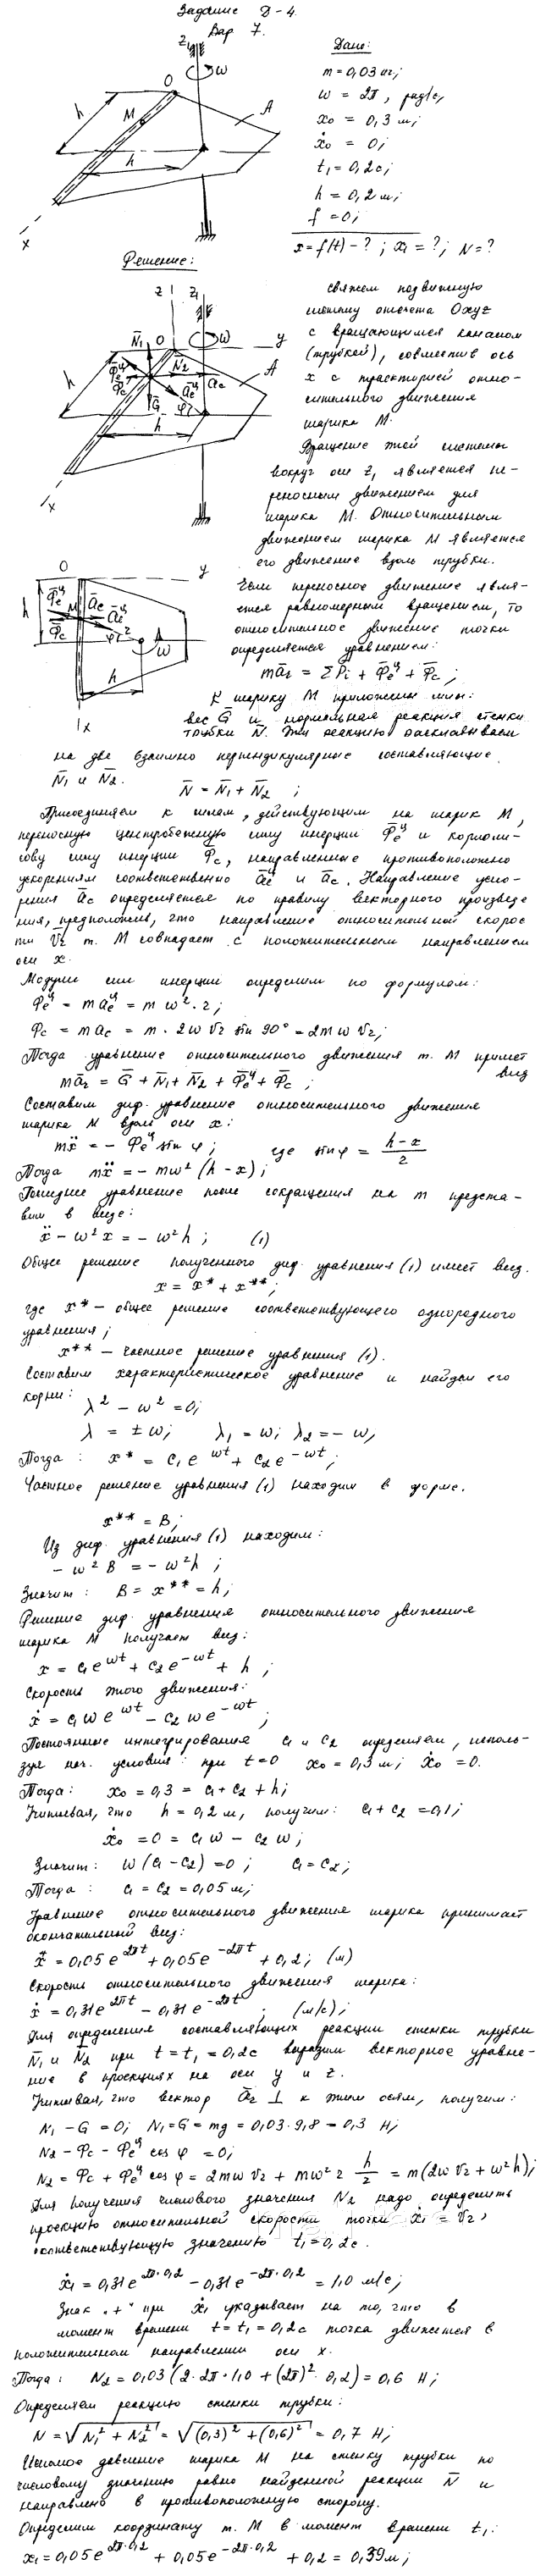 Задание Д-4.
Вар 7.
Дано:
m = 0,03 кг;
ω = 2π, рад/с,
x₀ = 0,3 м;
ẋ₀ = 0;
t₁ = 0,2 с;
h = 0,2 м;
f = 0;
x = f(t) - ? ; x₁ = ? ; N = ?
z₁
ω
O
A
M
h
h
x
Решение:
z z₁
N̄₁ O ω y
N̄₂ A
Φ̄eᶸ Φ̄c āc
āeᶸ
Ḡ φ r
h
h
x
Свяжем подвижную
систему отсчета Oxyz
с вращающимся каналом
(трубкой), совместив ось
x с траекторией отно-
сительного движения
шарика M.
Вращение этой системы
вокруг оси z₁ является пе-
реносным движением для
шарика M. Относительным
движением шарика M является
его движение вдоль трубки.
O y
h Φ̄eᶸ M āc āeᶸ
Φ̄c φ r
h ω
x
Если переносное движение явля-
ется равномерным вращением, то
относительное движение точки
определяется уравнением:
mār = ΣP̄i + Φ̄eᶸ + Φ̄c ;
К шарику M приложены силы:
вес Ḡ и нормальная реакция стенки
трубки N̄. Эту реакцию раскладываем
на две взаимно перпендикулярные составляющие
N̄₁ и N̄₂. N̄ = N̄₁ + N̄₂ ;
Присоединяем к силам, действующим на шарик M,
переносную центробежную силу инерции Φ̄eᶸ и кориоли-
сову силу инерции Φ̄c, направленные противоположно
ускорениям соответственно āeᶸ и āc. Направление уско-
рения āc определяется по правилу векторного произведе
ния, предположив, что направление относительной скорос
ти V̄r т. M совпадает с положительным направлением
оси x.
Модули сил инерции определим по формулам:
Φeᶸ = maeᶸ = mω²·r ;
Φc = mac = m·2ωVr sin 90° = 2mωVr;
Тогда уравнение относительного движения т. M примет
вид
mār = Ḡ + N̄₁ + N̄₂ + Φ̄eᶸ + Φ̄c ;
Составим диф. уравнение относительного движения
шарика M вдоль оси x:
mẍ = - Φeᶸ sin φ ; где sin φ = (h-x)/r
Тогда mẍ = - mω² (h-x) ;
Последнее уравнение после сокращения на m предста-
вим в виде:
ẍ - ω²x = - ω²h ; (1)
Общее решение полученного диф. уравнения (1) имеет вид.
x = x* + x** ;
где x* - общее решение соответствующего однородного
уравнения;
x** - частное решение уравнения (1).
Составим характеристическое уравнение и найдем его
корни:
λ² - ω² = 0;
λ = ± ω; λ₁ = ω; λ₂ = - ω,
Тогда : x* = c₁e^ωt + c₂e^-ωt ;
Частное решение уравнения (1) находим в форме.
x** = B;
Из диф. уравнения (1) находим:
- ω²B = - ω²h ;
Значит : B = x** = h;
Решение диф. уравнения относительного движения
шарика M получает вид:
x = c₁e^ωt + c₂e^-ωt + h ;
Скорость этого движения:
ẋ = c₁ωe^ωt - c₂ωe^-ωt ;
Постоянные интегрирования c₁ и c₂ определяем, исполь-
зуя нач. условия: при t=0 x₀ = 0,3 м; ẋ₀ = 0.
Тогда: x₀ = 0,3 = c₁ + c₂ + h;
Учитывая, что h = 0,2 м, получим: c₁ + c₂ = 0,1;
ẋ₀ = 0 = c₁ω - c₂ω;
Значит: ω(c₁ - c₂) = 0 ; c₁ = c₂;
Тогда : c₁ = c₂ = 0,05 м;
Уравнение относительного движения шарика принимает
окончательный вид:
x = 0,05e^2πt + 0,05e^-2πt + 0,2; (м)
Скорость относительного движения шарика:
ẋ = 0,31e^2πt - 0,31e^-2πt ; (м/с);
Для определения составляющих реакции стенки трубки
N̄₁ и N̄₂ при t = t₁ = 0,2с выразим векторное уравне-
ние в проекциях на оси y и z.
Учитывая, что вектор ār ⊥ к этим осям, получим:
N₁ - G = 0; N₁ = G = mg = 0,03·9,8 = 0,3 Н;
N₂ - Φc - Φeᶸ cos φ = 0;
N₂ = Φc + Φeᶸ cos φ = 2mωVr + mω²r h/r = m(2ωVr + ω²h);
Для получения числового значения N₂ надо определить
проекцию относительной скорости точки ẋ₁ = Vr,
соответствующую значению t₁ = 0,2с.
ẋ₁ = 0,31e^2π·0,2 - 0,31e^-2π·0,2 = 1,0 м/с;
Знак „+" при ẋ₁ указывает на то, что в
момент времени t = t₁ = 0,2с точка движется в
положительном направлении оси x.
Тогда : N₂ = 0,03(2·2π·1,0 + (2π)²·0,2) = 0,6 Н;
Определяем реакцию стенки трубки:
N = √N₁² + N₂² = √(0,3)² + (0,6)² = 0,7 Н;
Искомое давление шарика M на стенку трубки по
числовому значению равно найденной реакции N̄ и
направлено в противоположную сторону.
Определим координату т. M в момент времени t₁:
x₁ = 0,05e^2π·0,2 + 0,05e^-2π·0,2 + 0,2 = 0,39 м;